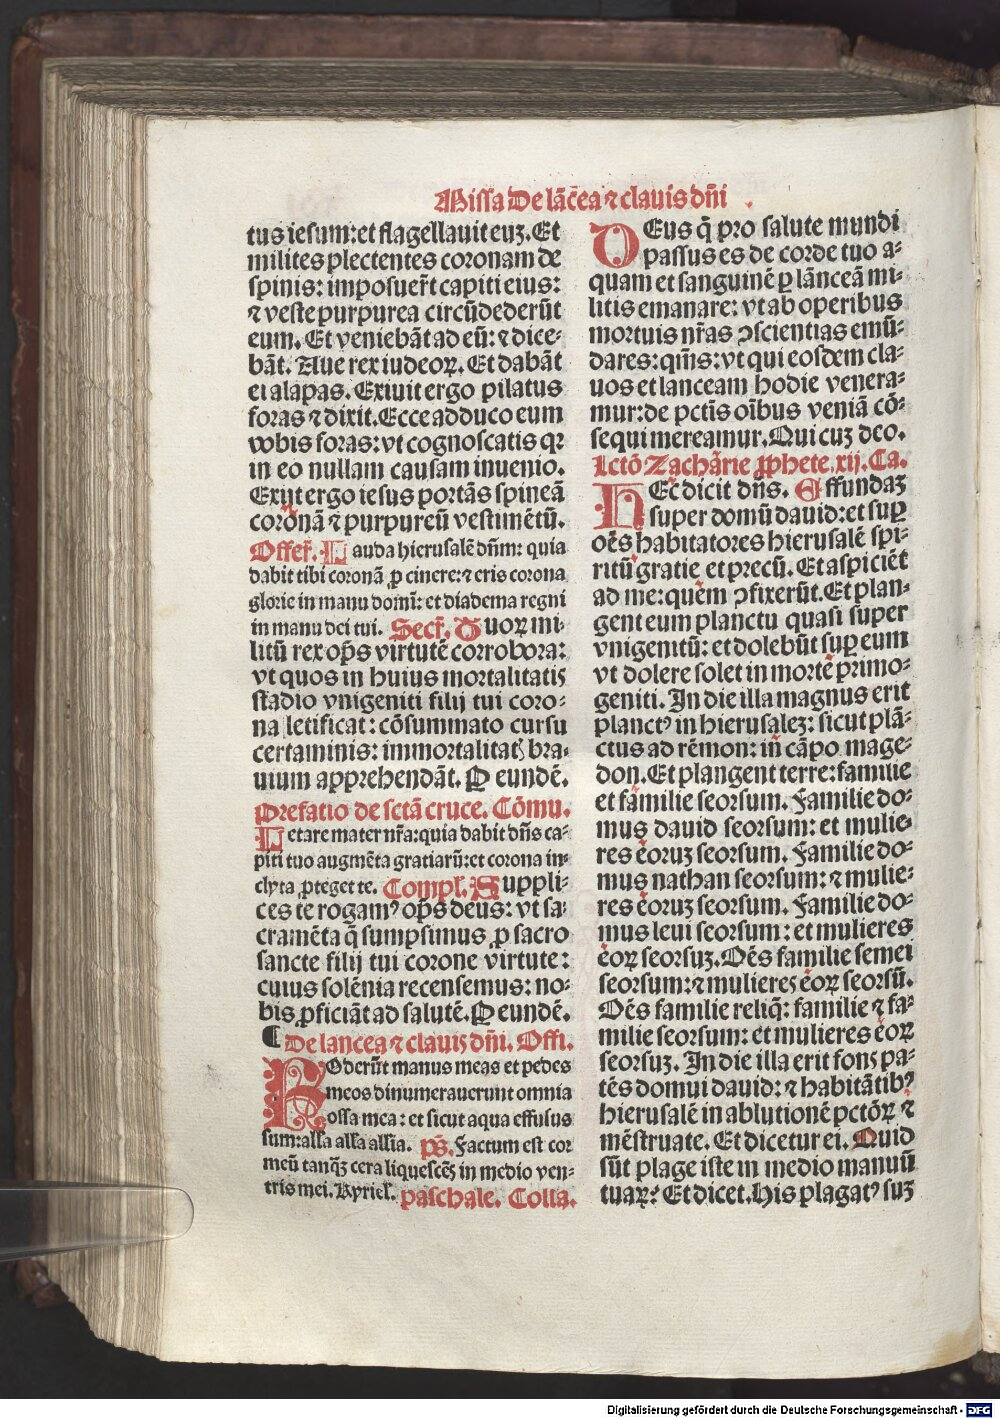 Missa De lāce̅a ⁊ clauis dn̄i
tus iesum: et flagellauit euꝫ. Et
milites plectentes coronam de
spinis: imposuer̄t capiti eius:
⁊ veste purpurea circūdederūt
eum. Et veniebāt ad eū: ⁊ dice-
bāt. Aue rex iudeoꝝ. Et dabāt
ei alapas. Exiuit ergo pilatus
foras ⁊ dixit. Ecce adduco eum
vobis foras: vt cognoscatis qꝛ
in eo nullam causam inuenio.
Exijt ergo iesus portās spineā
coronā ⁊ purpureū vestimētū.
Offer̄. Lauda hierusalē dn̄m: quia
dabit tibi coronā ꝓ cinere: ⁊ eris corona
glorie in manu domī: et diadema regni
in manu dei tui. Secr̄. Quoꝝ mi-
litū rex op̄s virtutē corrobora:
vt quos in huius mortalitatis
stadio vnigeniti filij tui coro-
na letificat: cōsummato cursu
certaminis: immortalitatꝭ bra-
uium apprehendāt. P eundē.
Prefatio de sctā cruce. Cōmu.
Letare mater nr̄a: quia dabit dn̄s ca-
piti tuo augmēta gratiarū: et corona in-
clyta ꝓteget te. Compl̄. Suppli-
ces te rogamꝰ op̄s deus: vt sa-
cramēta q̄ sumpsimus ꝓ sacro
sancte filij tui corone virtute:
cuius solēnia recensemus: no-
bis ꝓficiāt ad salutē. P eundē.
¶ De lancea ⁊ clauis dn̄i. Offi.
FOderūt manus meas et pedes
meos dinumerauerunt omnia
ossa mea: et sicut aqua effusus
sum: alla alla allīa. ps̄. Factum est cor
meū tanqꝫ cera liquescēs in medio ven-
tris mei. Kyriel̄. paschale. Colla.
DEus q̄ pro salute mundi
passus es de corde tuo a-
quam et sanguinē ꝑ lānceā mi-
litis emanare: vt ab operibus
mortuis nr̄as ꝯscientias emū-
dares: qm̄s: vt qui eosdem cla-
uos et lanceam hodie venera-
mur: de pctīs oībus veniā cō-
sequi mereamur. Qui cuꝫ deo.
Lctō Zacharie ꝓphete. xij. Ca.
HEc̄ dicit dn̄s. Effundaꝫ
super domū dauid: et suꝑ
oēs habitatores hierusalē spi-
ritū gratie et precū. Et aspiciēt
ad me: quem ꝯfixerūt. Et plan-
gent eum planctu quasi super
vnigenitū: et dolebūt suꝑ eum
vt dolere solet in mortē primo-
geniti. In die illa magnus erit
planctꝰ in hierusaleꝫ: sicut plā-
ctus ad rēmon: in cāpo mage-
don. Et plangent terre: familie
et familie seorsum. Familie do-
mus dauid seorsum: et mulie-
res eoruꝫ seorsum. Familie do-
mus nathan seorsum: ⁊ mulie-
res eoruꝫ seorsum. Familie do-
mus leui seorsum: et mulieres
eoꝝ seorsuꝫ. Oēs familie semei
seorsum: ⁊ mulieres eoꝝ seorsū.
Oēs familie reliq̄: familie ⁊ fa-
milie seorsum: et mulieres eoꝝ
seorsuꝫ. In die illa erit fons pa-
tēs domui dauid: ⁊ habitātibꝰ
hierusalē in ablutionē pctōꝝ ⁊
mēstruate. Et dicetur ei. Quid
sūt plage iste in medio manuū
tuaꝝ? Et dicet. His plagatꝰ suꝫ
Digitalisierung gefördert durch die Deutsche Forschungsgemeinschaft - DFG